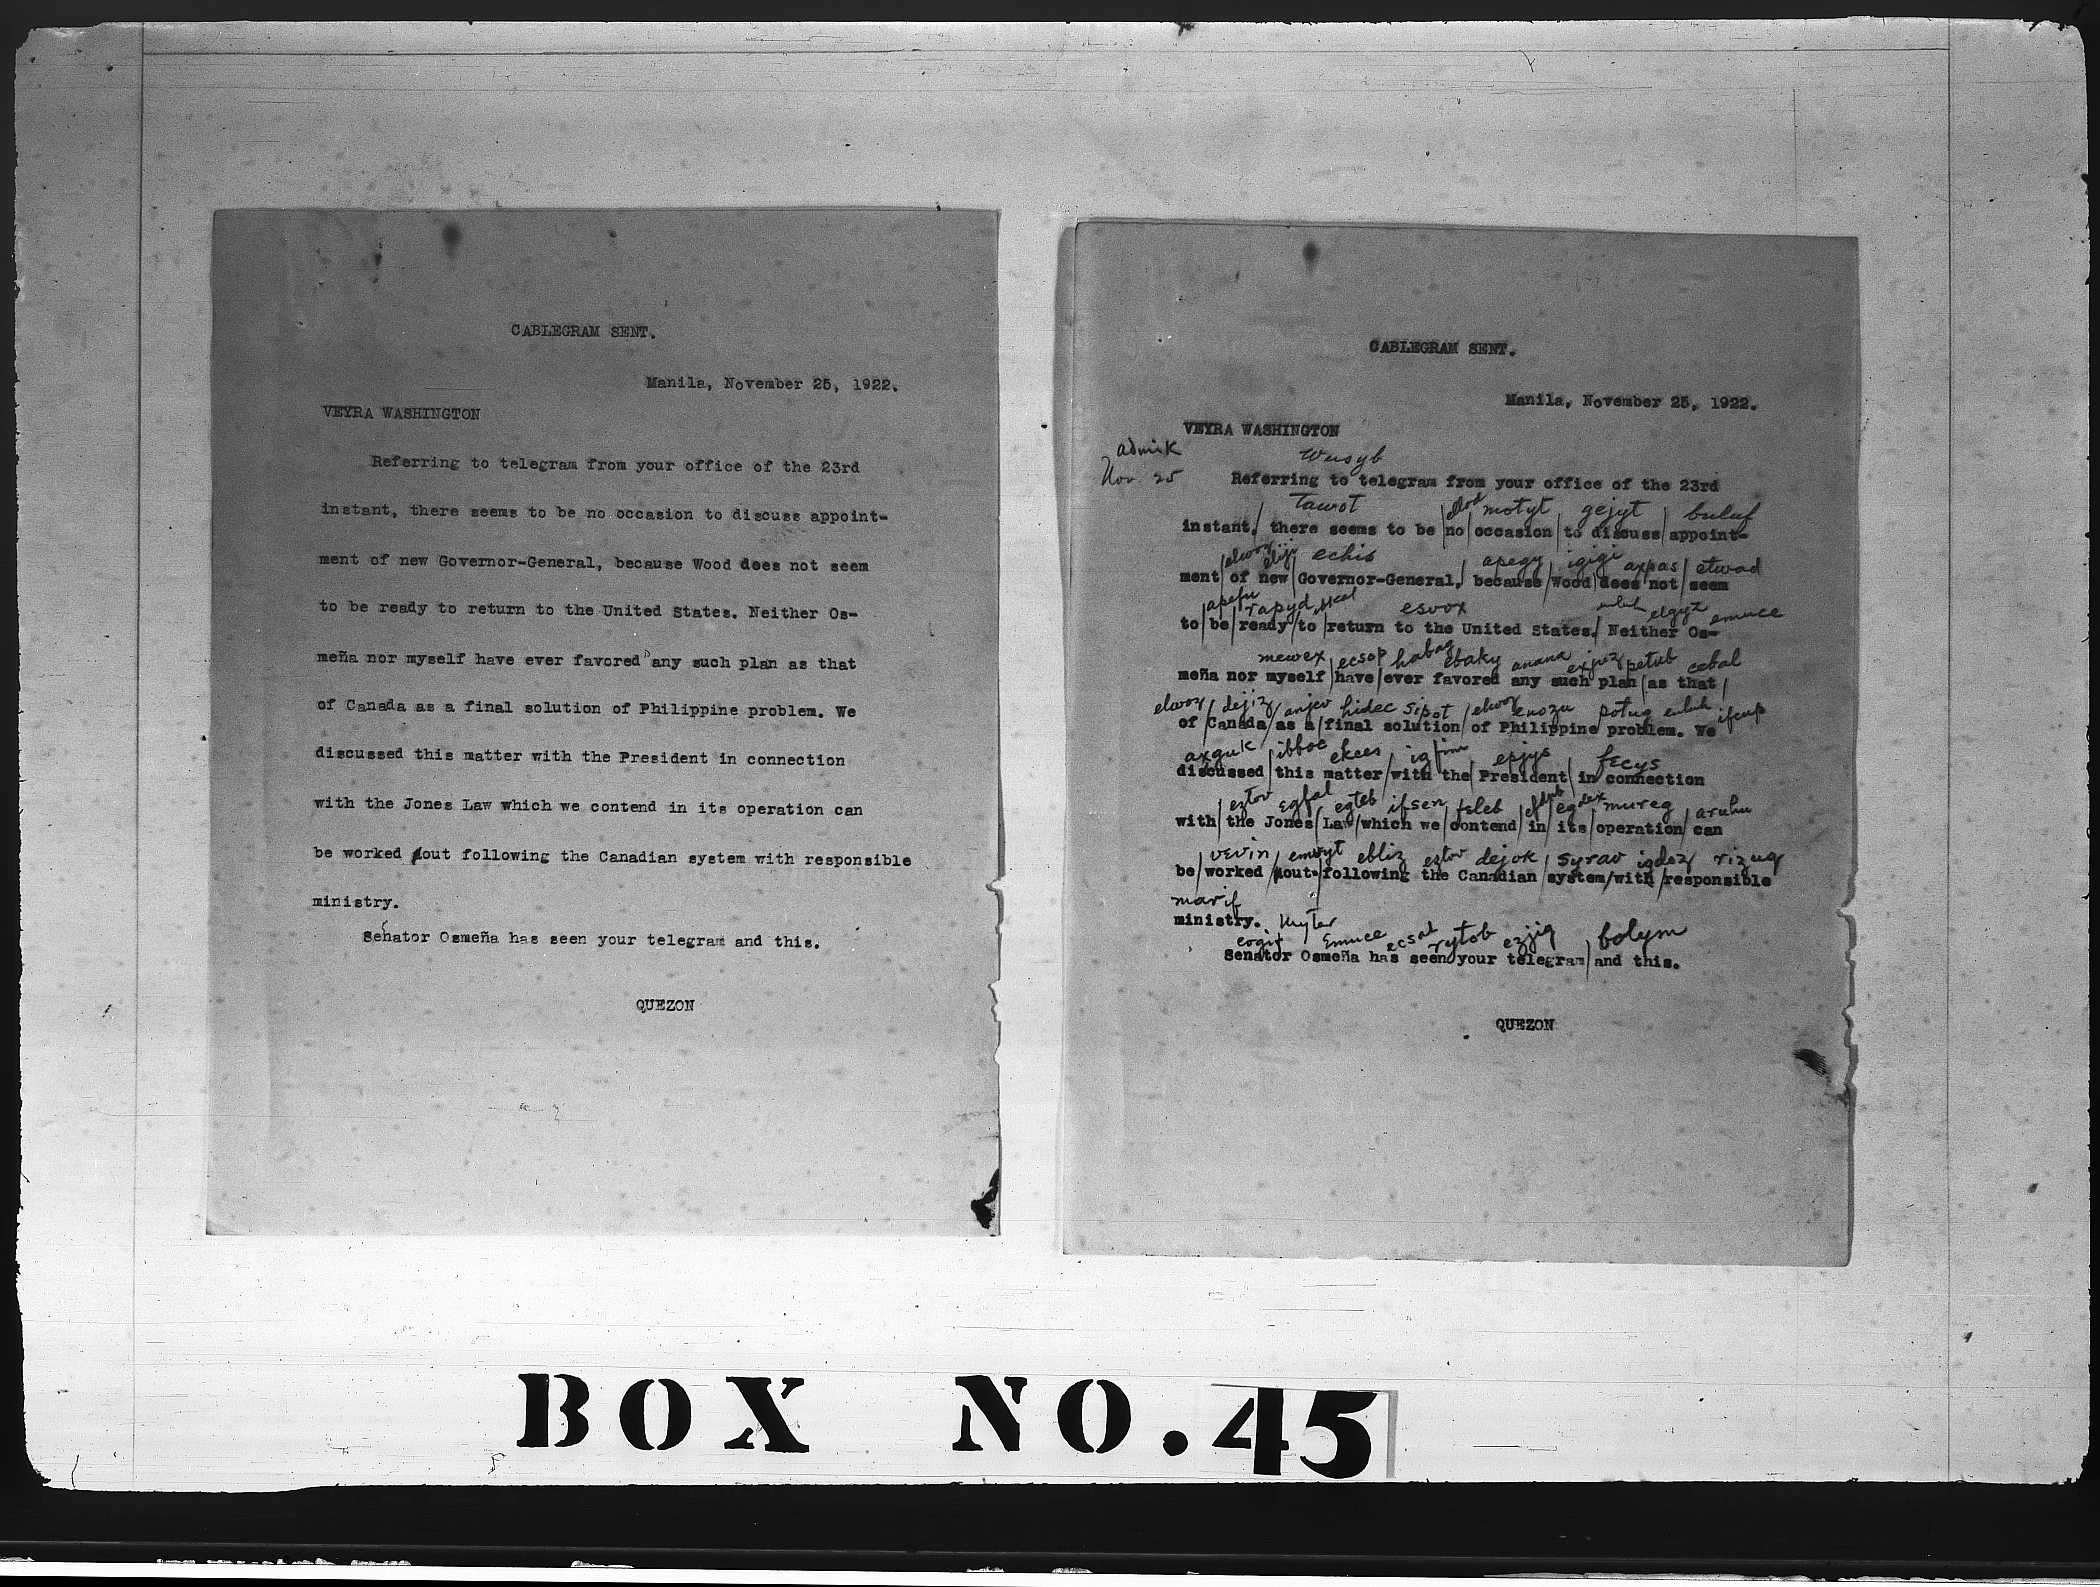 CABLEGRAM SENT.
Manila, November 25, 1922.
VEYRA WASHINGTON
Referring to telegram from your office of the 23rd
instant, there seems to be no occasion to discuss appoint-
ment of new Governor-General, because Wood does not seem
to be ready to return to the United States. Neither Os-
meña nor myself have ever favored any such plan as that
of Canada as a final solution of Philippine problem. We
discussed this matter with the President in connection
with the Jones Law which we contend in its operation can
be worked out following the Canadian system with responsible
ministry.
Senator Osmeña has seen your telegram and this.
QUEZON
CABLEGRAM SENT.
Manila, November 25, 1922.
VEYRA WASHINGTON
admik
Nov. 25
wusyb
Referring to telegram from your office of the 23rd
tawot motyt gejyt buluf
instant, there seems to be no occasion to discuss appoint-
echis apegy igigi axpas etwad
ment of new Governor-General, because Wood does not seem
apefu rapyd esvox elgyz emuce
to be ready to return to the United States. Neither Os-
mewex ecsop habag ebaky anana petub cebal
meña nor myself have ever favored any such plan as that
elwox dejiz anjev hidec sipot elwox enozu potug
of Canada as a final solution of Philippine problem. We
axguk ibboe ekees epjys fecys
discussed this matter with the President in connection
eztov egfal egteb ifsen feleb mureg aruhu
with the Jones Law which we contend in its operation can
vevin emwyt ebliz eztov dejok syrav igdoz rizug
be worked out following the Canadian system with responsible
marif
ministry.
emuce ecsat rytob ezjig bolym
Senator Osmeña has seen your telegram and this.
QUEZON
BOX NO. 45